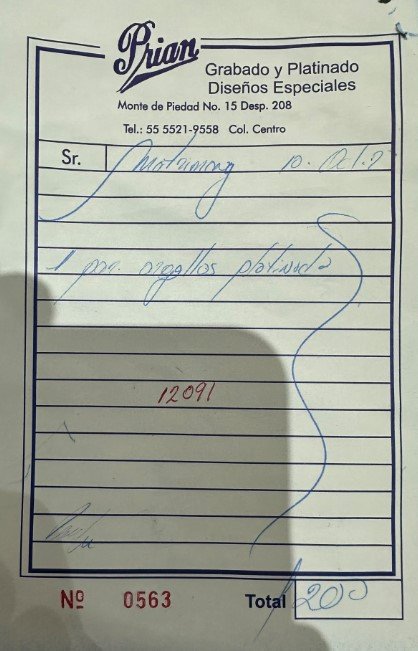 Prian
Grabado y Platinado
Diseños Especiales
Monte de Piedad No. 15 Desp. 208
Tel.: 55 5521-9558 Col. Centro
Sr. 10. Oct.
1 par. argollas platinada
12091
Nº 0563 Total 1200